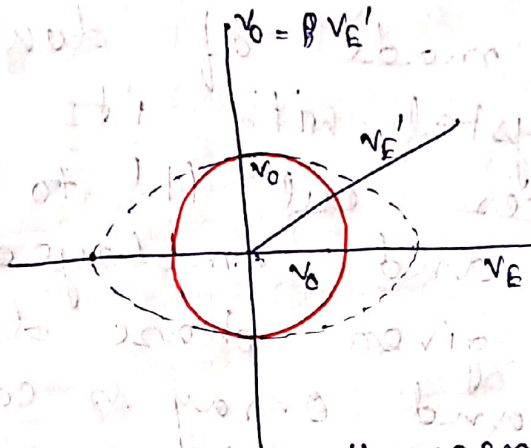 v₀ = β v_E'
v_E'
v₀
v₀
v_E